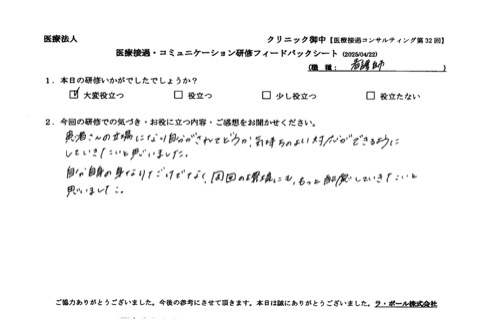 医療法人 クリニック御中【医療接遇コンサルティング第32回】
医療接遇・コミュニケーション研修フィードバックシート (2025/04/22)
(職種: 看護師 )
1. 本日の研修いかがでしたでしょうか?
☑ 大変役立つ □ 役立つ □ 少し役立つ □ 役立たない
2. 今回の研修での気づき・お役に立つ内容・ご感想をお聞かせください。
患者さんの立場になり自分がされてどうか、気持ちのよい対応ができるように
していきたいと思いました。
自分自身の身なりだけでなく、周囲の環境にも、もっと配慮していきたいと
思いました。
ご協力ありがとうございました。今後の参考にさせて頂きます。本日は誠にありがとうございました。ラ・ポール株式会社